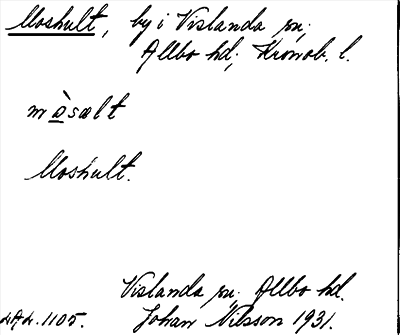 Moshult, by i Vislanda sn;
Allbo hd; Kronob. l.
mò̲sælt
Moshult.
Vislanda sn; Allbo hd.
LAL. 1105. Johan Nilsson 1931.